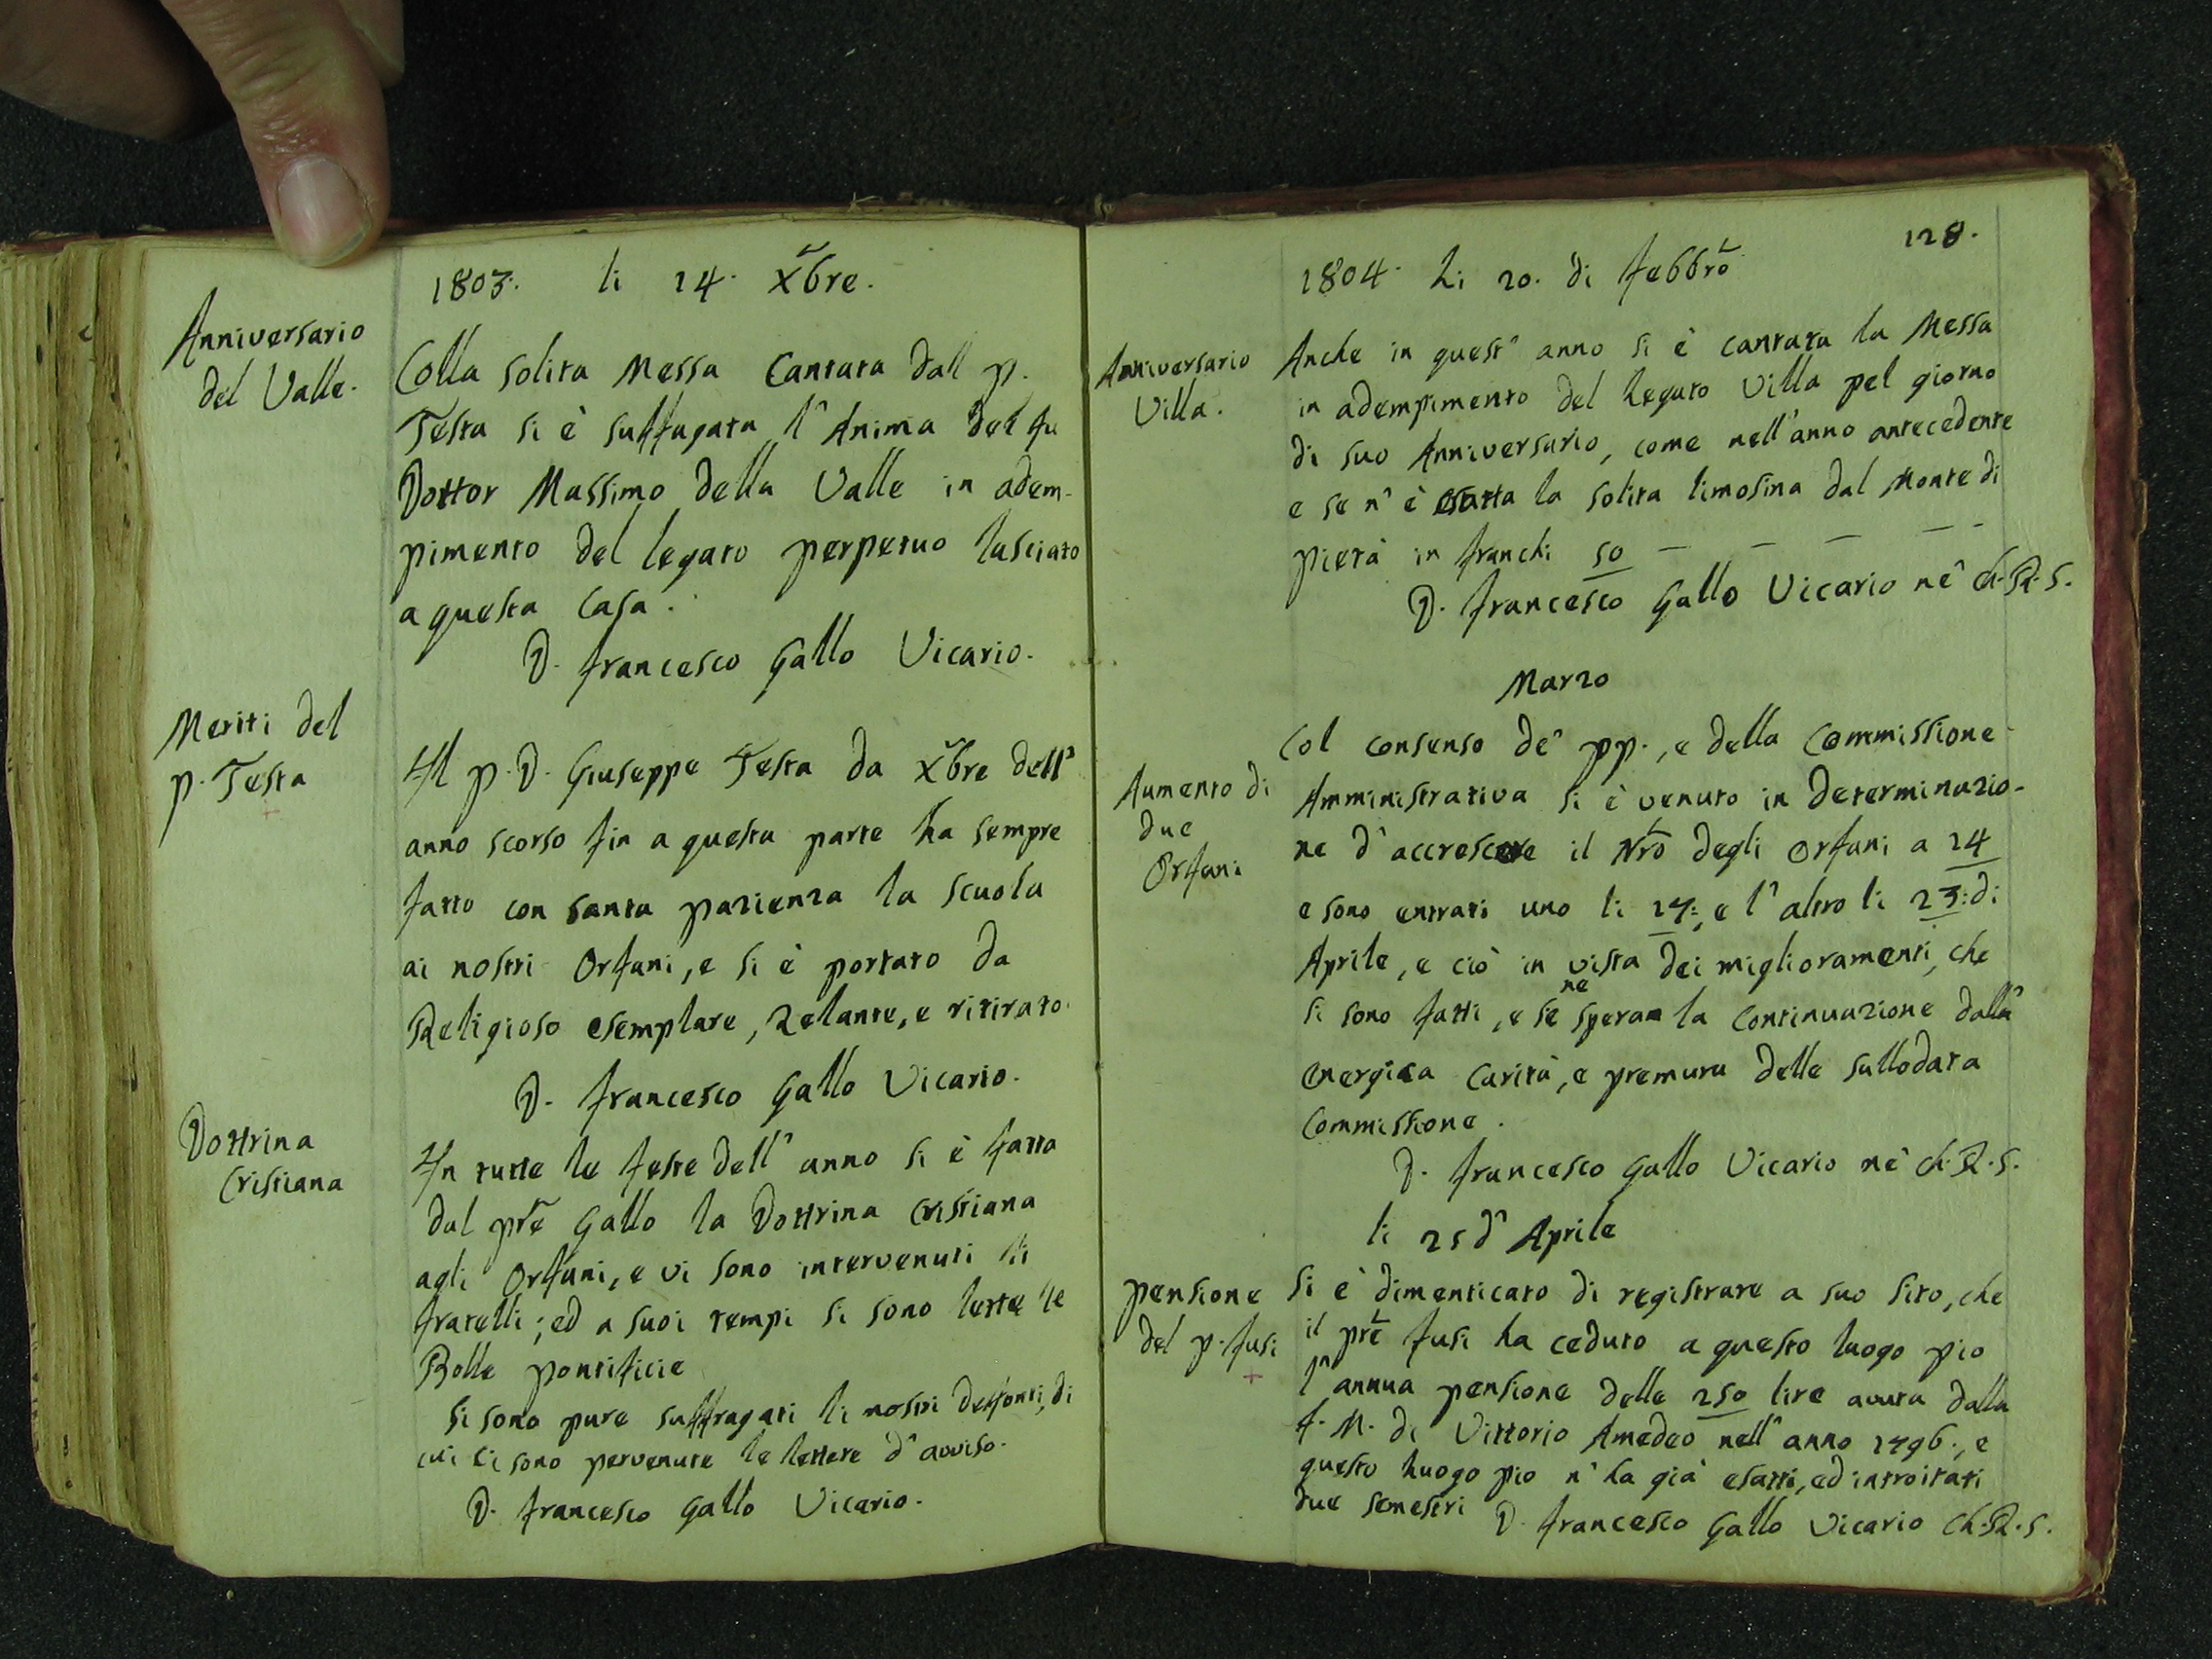 1803. li 14. Xbre.
Anniversario
del Valle.
Colla solita Messa Cantata dall p.
Testa si è suffragata l'Anima del fu
Dottor Massimo della Valle in adem-
pimento del legato perpetuo lasciato
a questa Casa.
D. Francesco Gallo Vicario.
Meriti del
p. Testa
Il p. D. Giuseppe Testa da Xbre dell'
anno scorso fin a questa parte ha sempre
fatto con santa pazienza la scuola
ai nostri Orfani, e si è portato da
Religioso esemplare, zelante, e ritirato.
D. Francesco Gallo Vicario.
Dottrina
Cristiana
In tutte le feste dell'anno si è fatta
dal pre Gallo la Dottrina Cristiana
agli Orfani, e vi sono intervenuti li
fratelli; ed a suoi tempi si sono lette le
Bolle pontificie
Si sono pure suffragati li nostri defonti, di
cui ci sono pervenute le lettere d'avviso.
D. Francesco Gallo Vicario.
128.
1804. Li 20. di Febbro
Anniversario
Villa.
Anche in quest'anno si è cantata la Messa
in adempimento del Legato Villa pel giorno
di suo Anniversario, come nell'anno antecedente
e se n'è esatta la solita limosina dal Monte di
pietà in franchi 50 — — — — -
D. Francesco Gallo Vicario ne' Ch. R. S.
Marzo
Aumento di
due
Orfani
Col consenso de' pp., e della Commissione
Amministrativa si è venuto in determinazio-
ne d'accrescere il Nro degli Orfani a 14
e sono entrati uno li 17:, e l'altro li 23: di
Aprile, e ciò in vista dei miglioramenti, che
si sono fatti, e se ne spera la Continuazione dall'
energica Carità, e premura della sullodata
Commissione.
D. Francesco Gallo Vicario ne' Ch. R. S.
li 25 d'Aprile
pensione
del p. Fusi
Si è dimenticato di registrare a suo sito, che
il pre Fusi ha ceduto a questo luogo pio
l'annua pensione delle 250 lire avuta dalla
F. M. di Vittorio Amedeo nell'anno 1796., e
questo luogo pio n'ha già esatti, ed introitati
due semestri D. Francesco Gallo Vicario Ch. R. S.